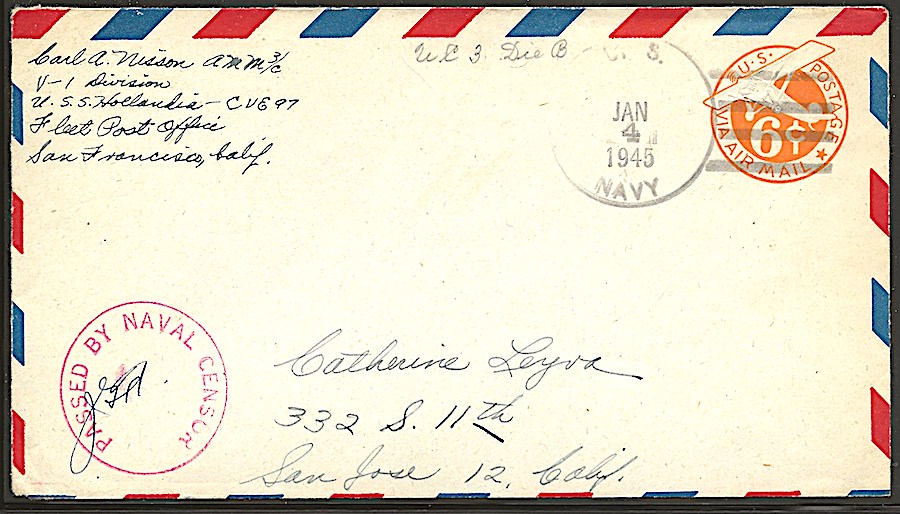 Carl A. Nisson AMM 3/c
V-1 Division
U.S.S. Hollandia - CVE 97
Fleet Post Office
San Francisco, Calif.
UC 3. Die B U. S.
JAN
4
1945
NAVY
U.S. POSTAGE
6¢
VIA AIR MAIL
PASSED BY NAVAL CENSOR
Catherine Leyva
332 S. 11th
San Jose 12, Calif.